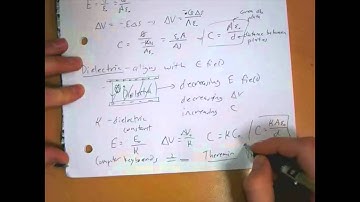 ΔV = -EΔS → ΔV =
C = = C = Aε₀/d
area of plate
d = distance between plates
Dielectric - aligns with E field
Dielectric → decreasing E field
decreasing ΔV
increasing C
K - dielectric constant
E = E₀/K ΔV = ΔV₀/K C = KC₀ C = KAε₀/d
Computer keyboards Theremin